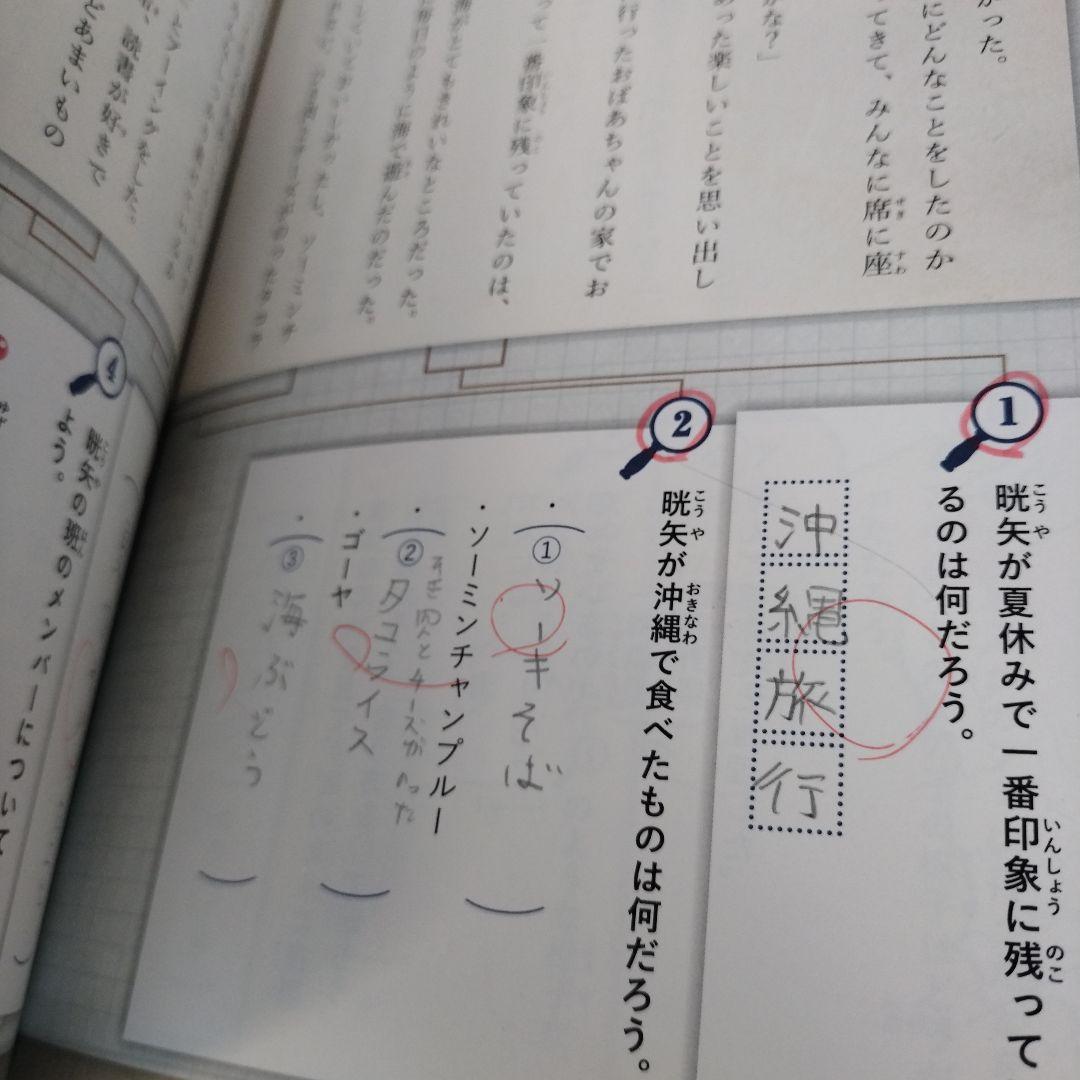 かった。
にどんなことをしたのか
ってきて、みんなに席に座
かな？」
あった楽しいことを思い出し
行ったおばあちゃんの家でお
って一番印象に残っていたのは、
海がとてもきれいなところだった。
毎日のように海で遊んだのだった。
読書が好きで
どあまいもの
1
晄矢が夏休みで一番印象に残って
るのは何だろう。
沖縄旅行
2
晄矢が沖縄で食べたものは何だろう。
・(①ソーキそば)
・ソーミンチャンプルー
・(②タコライス)
・ゴーヤ
・(③海ぶどう)
4
晄矢の班のメンバーについて
よう。